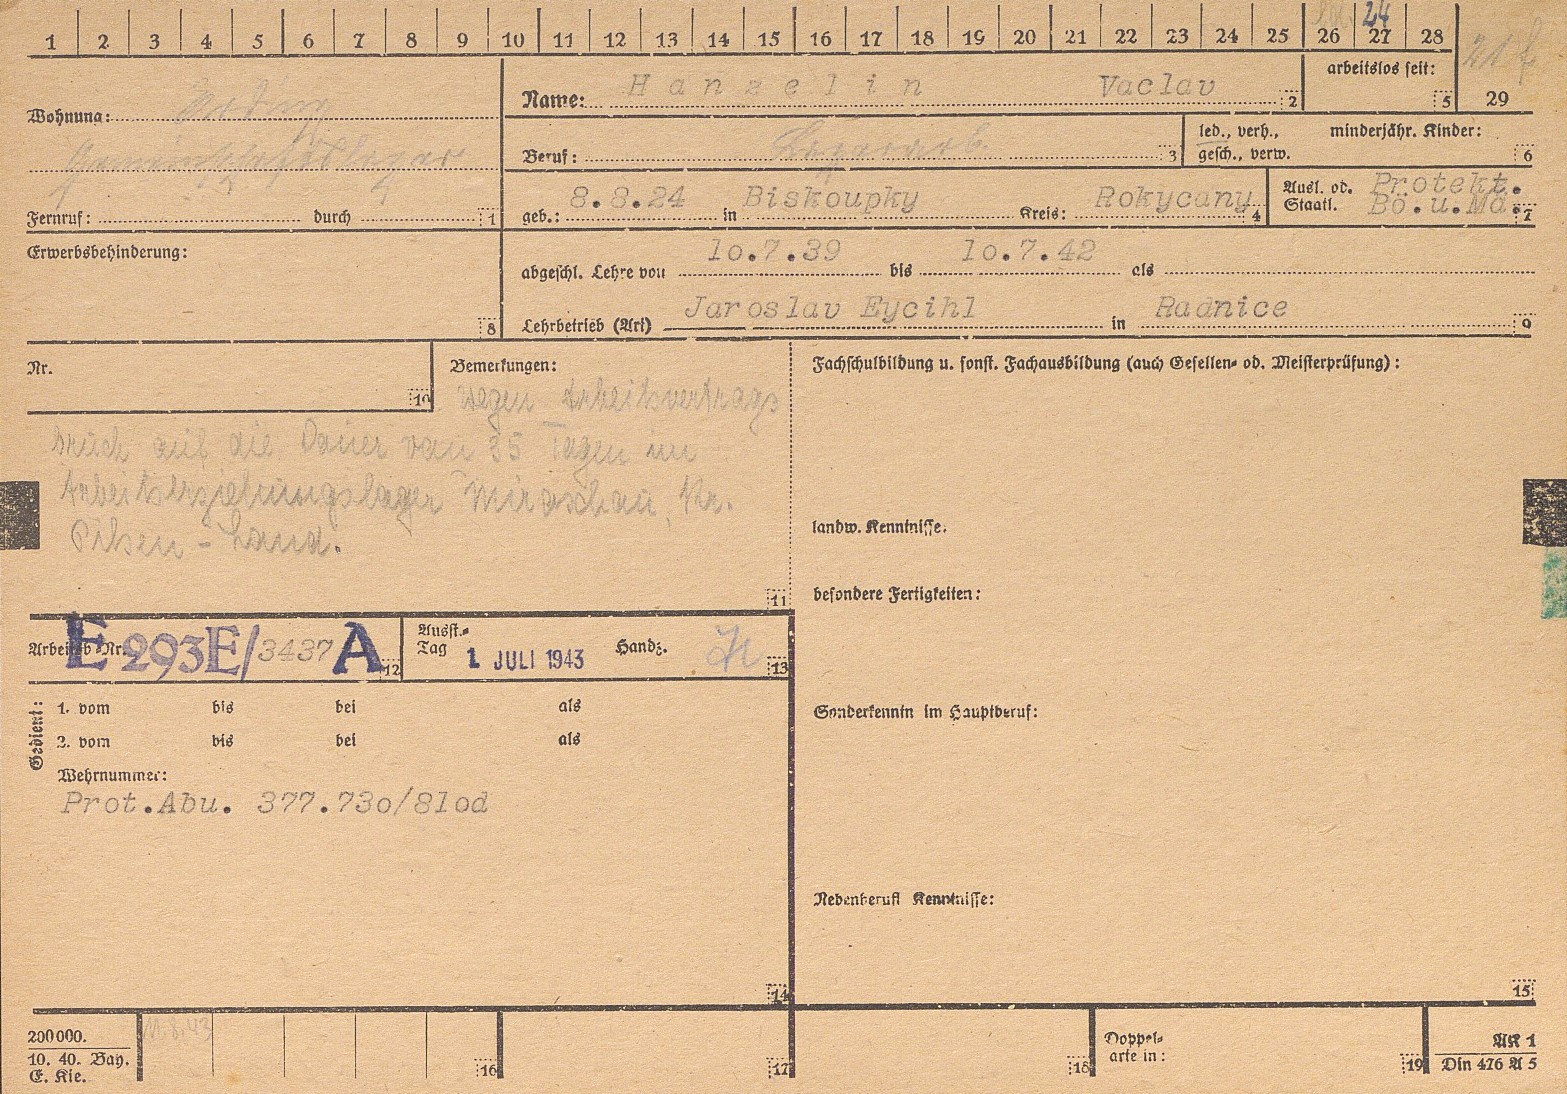 1 2 3 4 5 6 7 8 9 10 11 12 13 14 15 16 17 18 19 20 21 22 23 24 25 26 27 28
24
21 f
29
Wohnung: Erding
Gemeinschaftslager
Fernruf: durch 1
Name: Hanzelin Vaclav 2
arbeitslos seit: 5
Beruf: Lagerarb. 3
led., verh., gesch., verw.
minderjähr. Kinder: 6
geb.: 8.8.24 in Biskoupky Kreis: Rokycany 4
Ausl. od. Staatl. Protekt. Bö.u.Mä. 7
Erwerbsbehinderung: 8
abgeschl. Lehre von 1o.7.39 bis 1o.7.42 als
Lehrbetrieb (Art) Jaroslav Eycihl in Radnice 9
Nr. 10
Bemerkungen:
wegen Arbeitsvertrags
bruch auf die Dauer von 35 Tagen im
Arbeitserziehungslager Miroschau, Kr.
Pilsen - Land.
11
Fachschulbildung u. sonst. Fachausbildung (auch Gesellen- od. Meisterprüfung):
landw. Kenntnisse.
besondere Fertigkeiten:
Sonderkenntn im Hauptberuf:
Nebenberufl Kenntnisse:
15
Arbeitsb Nr. E 293E/3437 A 12
Ausst.-Tag 1 JULI 1943 Handz. 13
Gedient:
1. vom bis bei als
2. vom bis bei als
Wehrnummer:
Prot.Abu. 377.73o/81od
14
200 000.
10. 40. Bay.
E. Kie.
11.8.43
16 17 18
Doppel-
arte in: 19
AK 1
Din 476 A 5